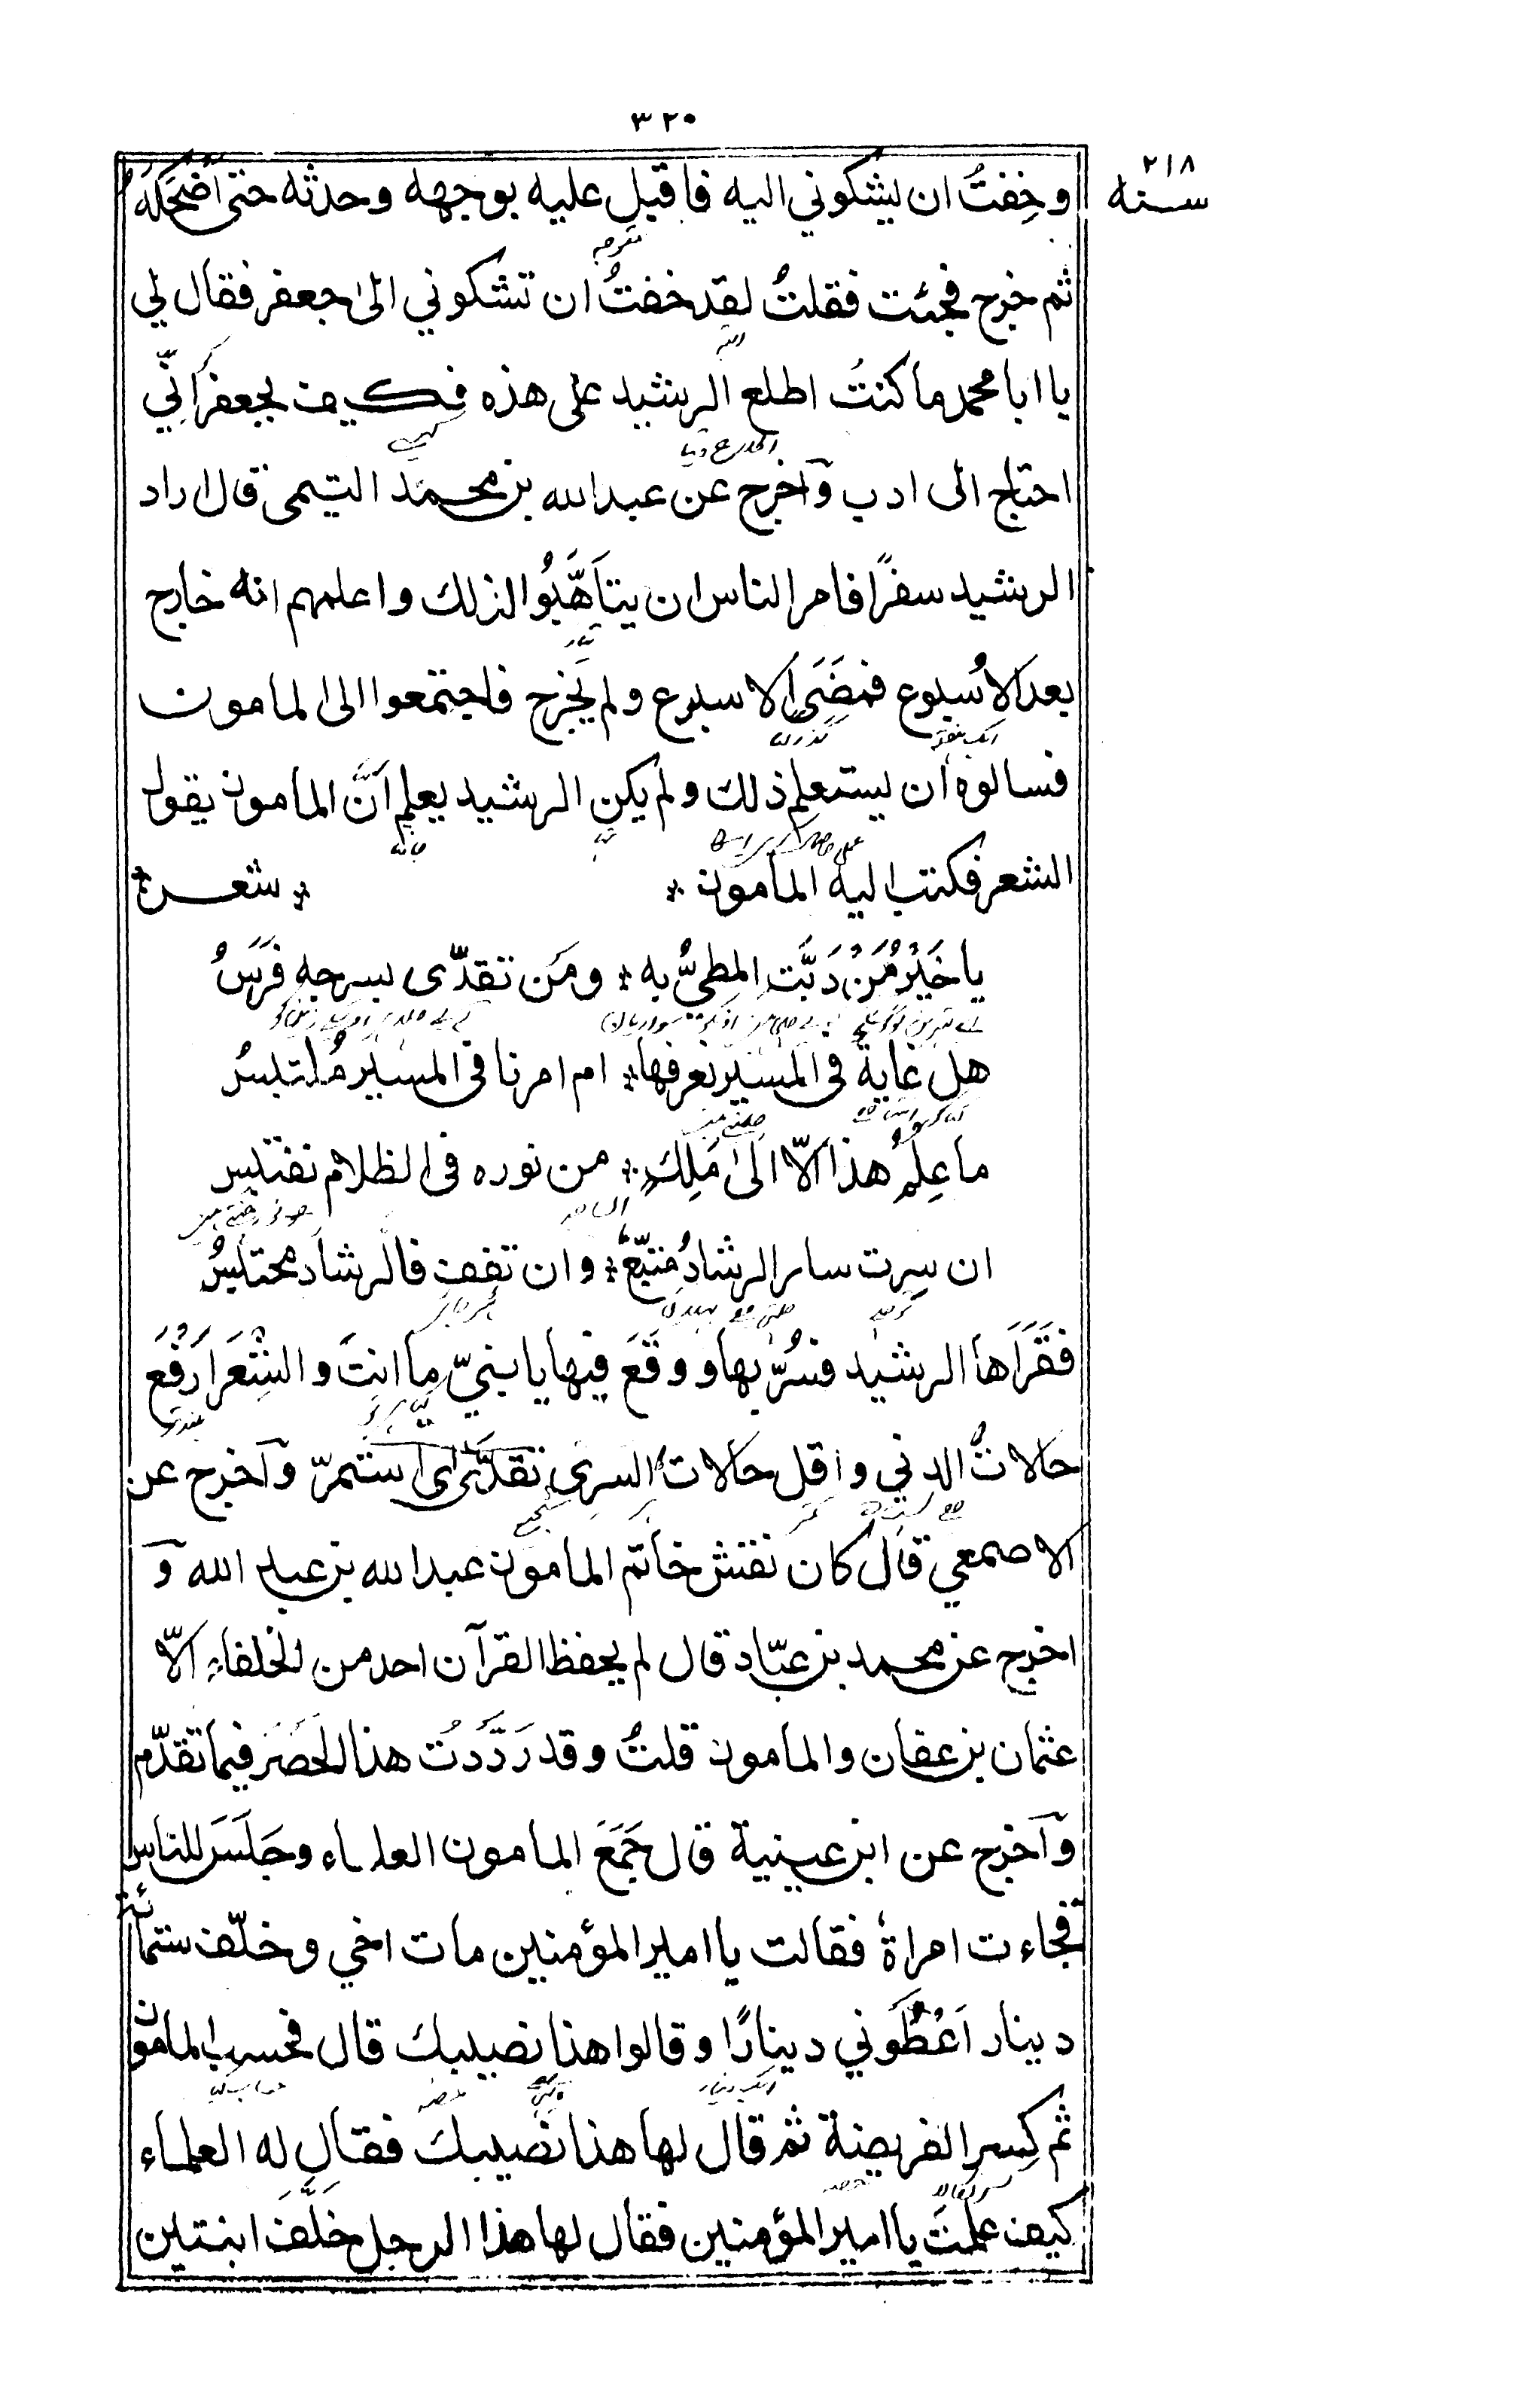 ٣٢٠
سنة ٢١٨
وخِفتُ ان يشكوني اليه فاقبل عليه بوجهه وحدثه حتى اضحَكَهُ
ثم خرج فجئت فقلتُ لقد خفتُ ان تشكوني الىٰ جعفر فقال لي
يا ابا محمد ما كنتُ اطلع الرشيد على هذه فكيف بجعفر اَنِّي
احتاج الى ادب وآخرج عن عبد الله بن محمد التيمى قال اراد
الرشيد سفرًا فامر الناس ان يتاَهَّبُوا لذلك واعلمهم انه خارج
بعد الاُسبوع فمضَىَ الاسبوع ولم يَخْرج فاجتمعوا الى المامون
فسالوه ان يستعلم ذلك ولم يكن الرشيد يعلم اَنَّ المامون يقول
الشعر فكتب اليه المامون * * شعر *
يا خَيْرُ مَنْ دَبَّتِ المِطيُّ به * ومَن تقدّى بسرجه فَرَسُ
هل غاية فى المسير نعرفها * ام امرنا فى المسير مُلتبسُ
ما عِلْمُ هذا الّا الىٰ مَلِكٍ * من نوره فى الظلام نقتبس
ان سِرت سار الرشادُ متبّعً * وان تقف فالرشاد محتبسُ
فقَرَاَها الرشيد فسُرّ بها ووقَعَ فيها يا بنيّ ما انتَ والشِعْرَ اَرْفَع
حالاتُ الدني واقل حالات السرى تقدَّى اى استمرّ وآخرج عن
الاصمعي قال كان نقش خاتم المامون عبد الله بن عبد الله و
اخرج عن محمد بن عبّاد قال لم يحفظ القرآن احد من الخلفاء الّا
عثمان بن عفان والمامون قلتُ وقد رَدَّدتُ هذا الحَصْرَ فيما تقدّم
وآخرج عن ابن عيينية قال جَمَعَ المامون العلماء وجَلَسَ للناس
فجاءت امراةٌ فقالت يا امير المؤمنين مات اخي وخلّف ستمائة
دينار اَعْطَوني دينارًا وقالوا هذا نصيبك قال فحسب المامون
ثم كسر الفريضة ثم قال لها هذا نصيبك فقال له العلماء
كيف علمتَ يا امير المؤمنين فقال لها هذا الرجل خلَّفَ ابنتين